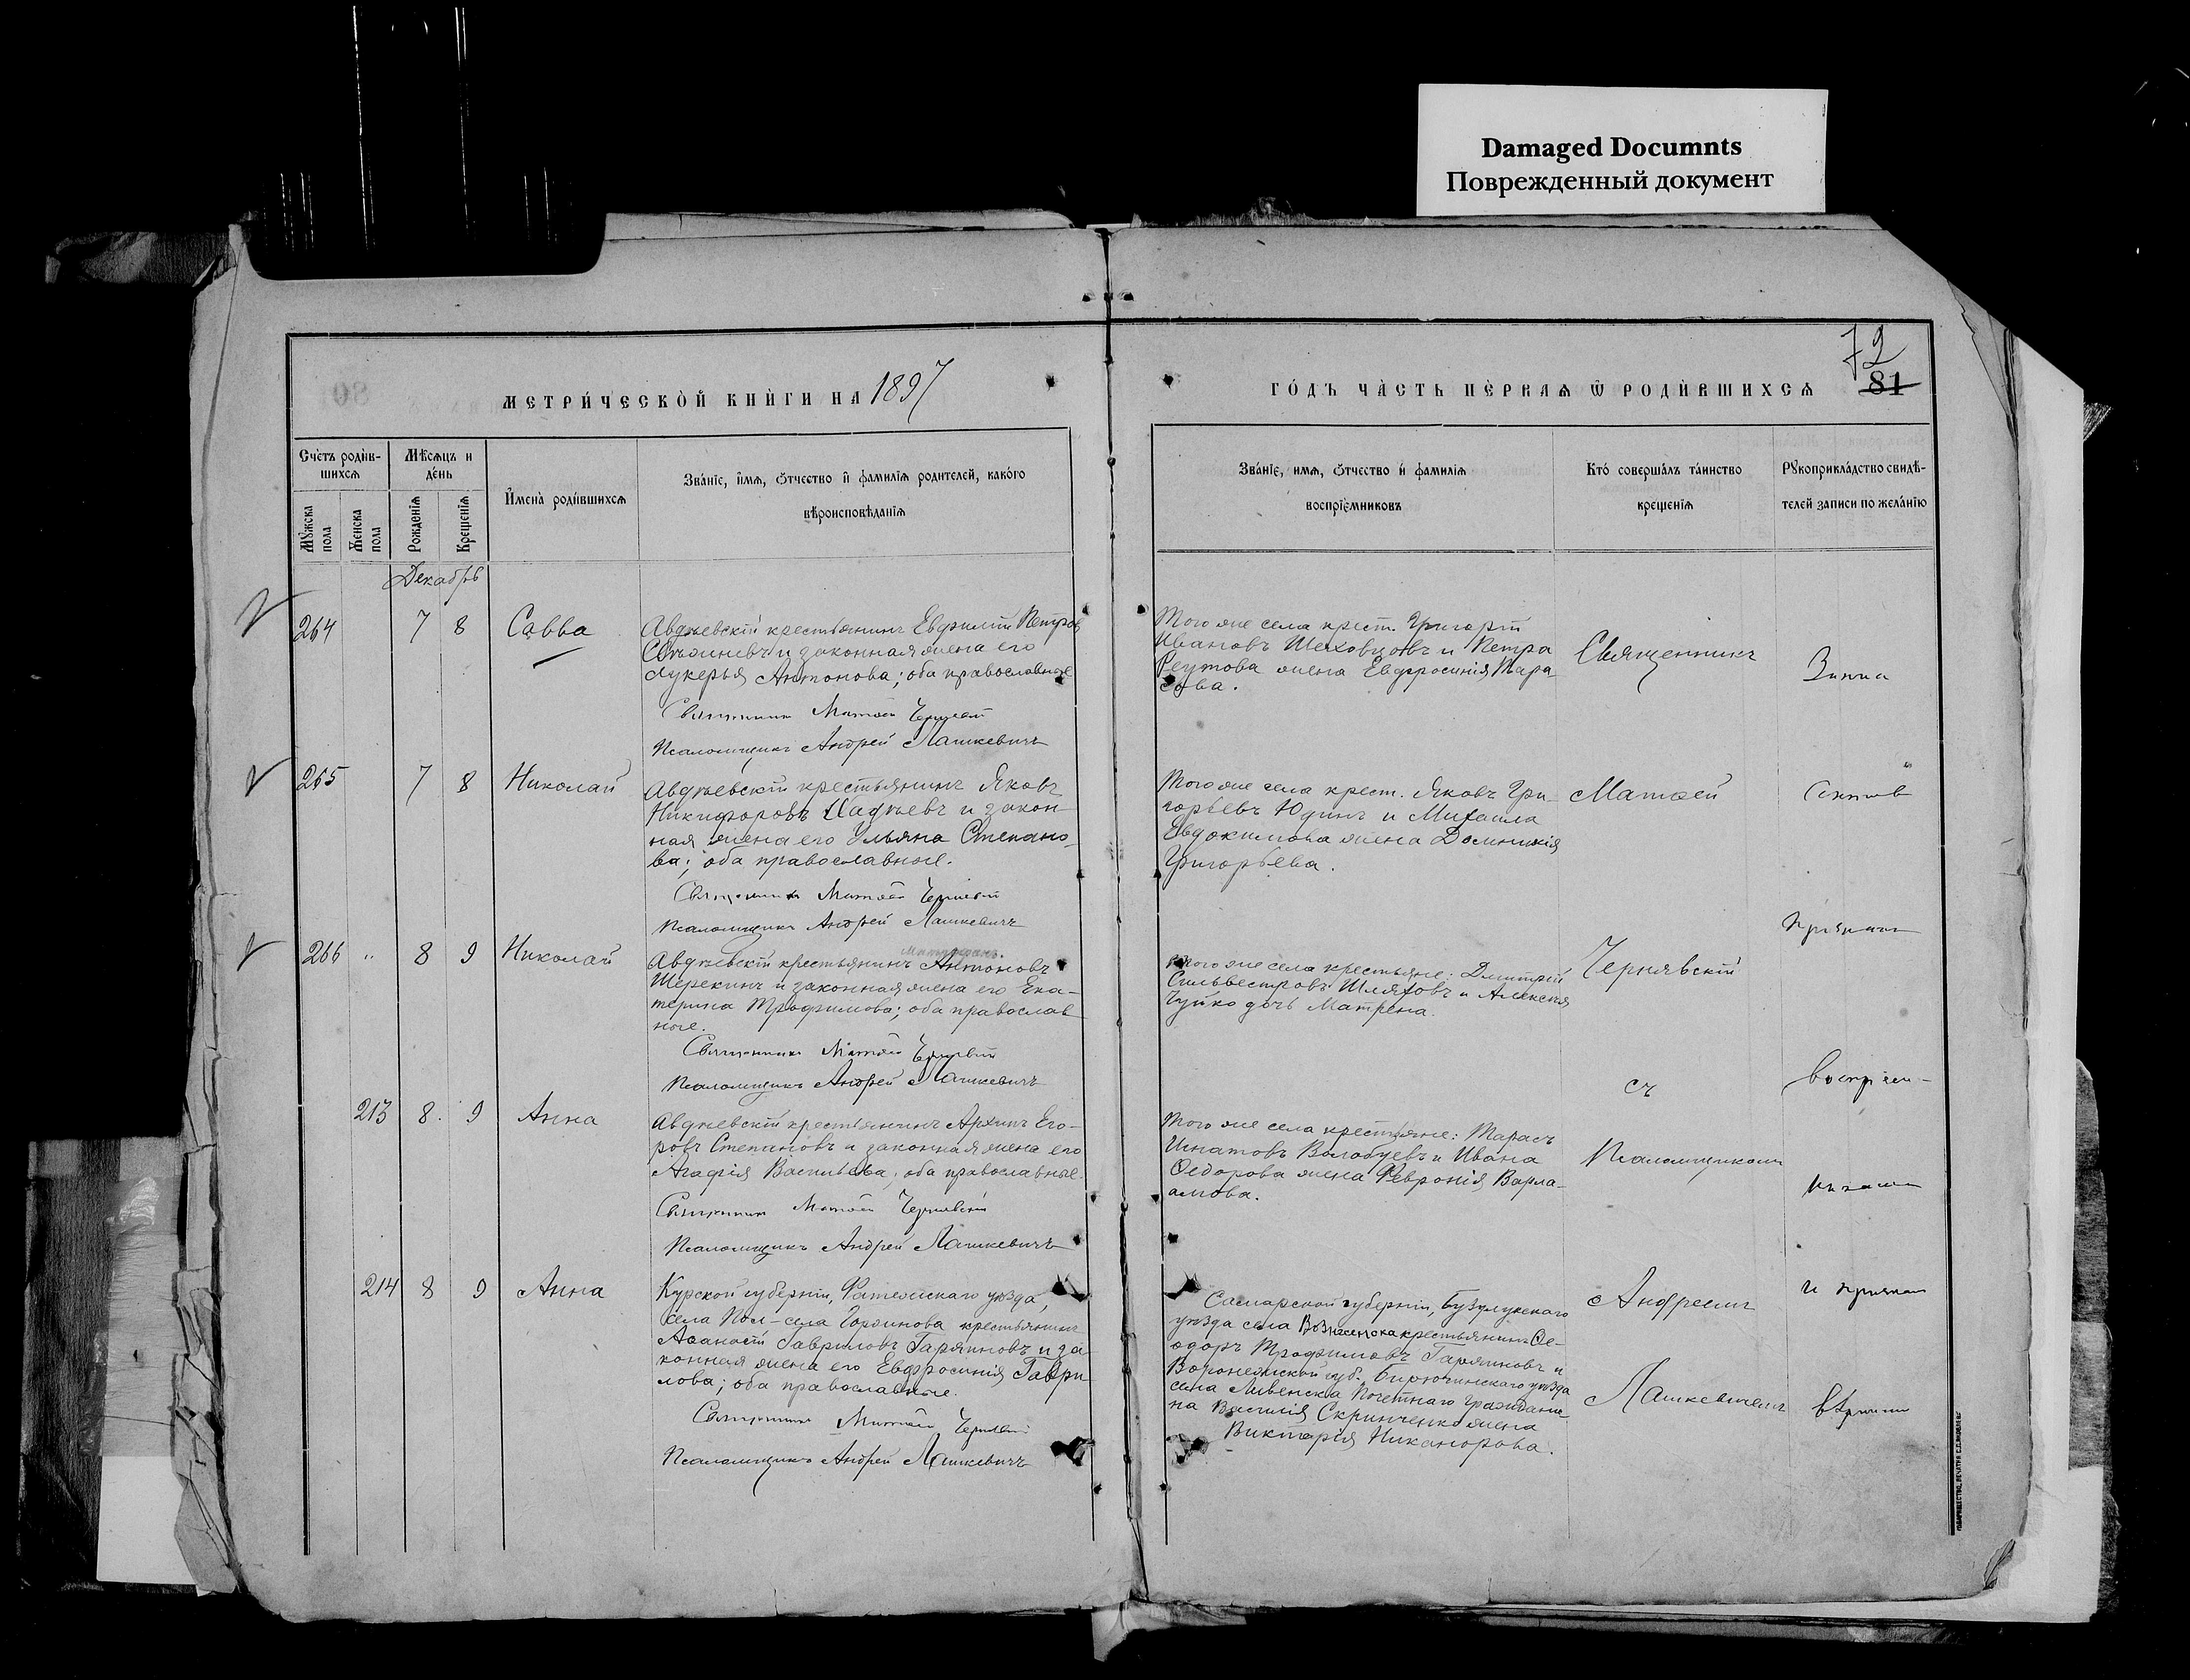 Damaged Documnts
Поврежденный документ
МЕТРИ́ЧЕСКОЙ КНИ́ГИ НА 1897
ГО́ДЪ ЧА́СТЬ ПЕ́РВАѦ Ѿ РОДИ́ВШИХСѦ
72
81
Сче́тъ роди́в-
шихсѧ
Мѣ́сѧцъ и
де́нь
Имена̀ роди́вшихсѧ
Зва́нїе, и́мѧ, ѻ́тчество и҆ фами́лїѧ роди́телей, како́го
вѣроисповѣ́данїѧ
Зва́нїе, имѧ, ѻ́тчество и҆ фами́лїѧ
воспрїе́мниковъ
Кто̀ соверша́лъ та́инство
креще́нїѧ
Рꙋкоприкла́дство свидѣ́-
телей записи по жела́нїю
Мꙋ́жска пола
Же́нска пола
Рожде́нїѧ
Креще́нїѧ
Декабрь
264 7 8 Савва
Авдѣевскій крестьянинъ Евфимій Петровъ
и законная жена его
Лукерья Антонова; оба православные
Священникъ Матѳей Чернявскій
Псаломщикъ Андрей Лашкевичъ
Того же села крест. Григорій
Ивановъ Шеховцовъ и Петра
Реутова жена Евфросинія Тара-
сова.
Священникъ
265 7 8 Николай
Авдѣевскій крестьянинъ Яковъ
Никифоровъ и закон-
ная жена его Ульяна Степано-
ва; оба православные.
Священникъ Матѳей Чернявскій
Псаломщикъ Андрей Лашкевичъ
Того же села крест. Яковъ Гри-
горьевъ Юдинъ и Михаила
Евдокимова жена Домникія
Григорьева.
Матѳей
266 " 8 9 Николай
Митрофанъ
Авдѣевскій крестьянинъ Антоновъ
Шерекинъ и законная жена его Ека-
терина Трофимова; оба православ
ные.
Священникъ Матѳей Чернявскій
Псаломщикъ Андрей Лашкевичъ
Того же села крестьяне: Дмитрій
Сильвестровъ Шляховъ и Алексѣя
Чуйко дочь Матрена.
Чернявскій
съ
213 8. 9 Анна
Авдѣевскій крестьянинъ Архипъ Его-
ровъ Степановъ и законная жена его
Агафія Васильева; оба православные.
Священникъ Матѳей Чернявскій
Псаломщикъ Андрей Лашкевичъ
Того же села крестьяне: Тарасъ
Игнатовъ Волобуевъ и Ивана
Ѳедорова жена Февронія Варла-
амова.
Псаломщикомъ
214 8 9 Анна
Курской губерніи, Фатежскаго уѣзда,
села крестьянинъ
Аѳанасій Гавриловъ Гаряиновъ и за
конная жена его Евфросинія Гаври
лова; оба православные.
Священникъ Матѳей Чернявскій
Псаломщикъ Андрей Лашкевичъ
Самарской губерніи, Бузулукскаго
уѣзда села Вознесенска крестьянинъ Ѳе-
одоръ Трофимовъ Гаряиновъ и
Воронежской губ., Бирюченскаго уѣзда
села Ливенска Почетнаго Гражданi-
на Василія Скринченко жена
Викторія Никанорова.
Андреемъ
Лашкевичемъ